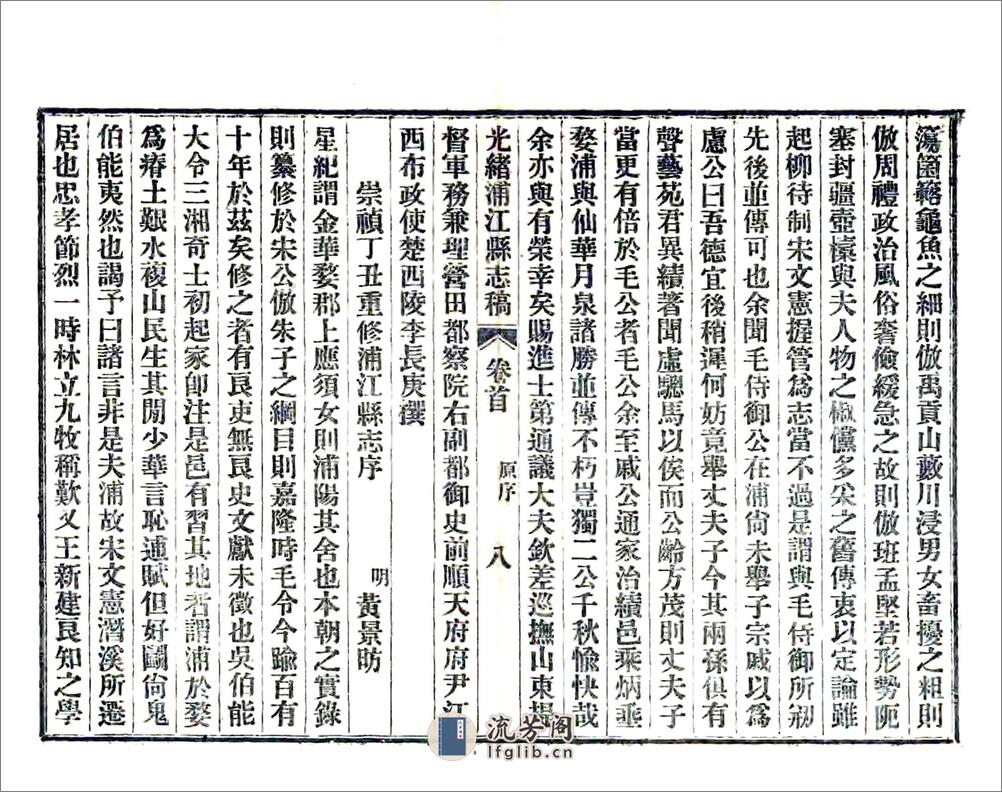 簜箘簵龜魚之細則倣禹貢山藪川浸男女畜擾之粗則
倣周禮政治風俗奢儉緩急之故則倣班孟堅若形勢阨
塞封疆壼㯺與夫人物之俶儻多采之舊傳衷以定論雖
起柳待制宋文憲握管爲志當不過是謂與毛侍御所刱
先後並傳可也余聞毛侍御公在浦尙未舉子宗戚以爲
慮公曰吾德宜後稍遲何妨竟舉丈夫子今其兩孫俱有
聲藝苑君異績著聞虛驄馬以俟而公齡方茂則丈夫子
當更有倍於毛公者毛公余至戚公通家治績邑乘炳垂
婺浦與仙華月泉諸勝並傳不朽豈獨二公千秋愉快哉
余亦與有榮幸矣賜進士第通議大夫欽差巡撫山東提
光緒浦江縣志稿 卷首 原序 八
督軍務兼理營田都察院右副都御史前順天府府尹江
西布政使楚西陵李長庚撰
崇禎丁丑重修浦江縣志序 明 黃景昉
星紀謂金華婺郡上應須女則浦陽其舍也本朝之實錄
則纂修於宋公倣朱子之綱目則嘉隆時毛令今踰百有
十年於茲矣修之者有良吏無良史文獻未徵也吳伯能
大令三湘奇士初起家卽注是邑有習其地者謂浦於婺
爲瘠土艱水複山民生其閒少華言恥逋賦但好鬭尙鬼
伯能夷然也謁予曰諸言非是夫浦故宋文憲潛溪所遷
居也忠孝節烈一時林立九牧稱歎又王新建良知之學
流芳阁
lfglib.cn